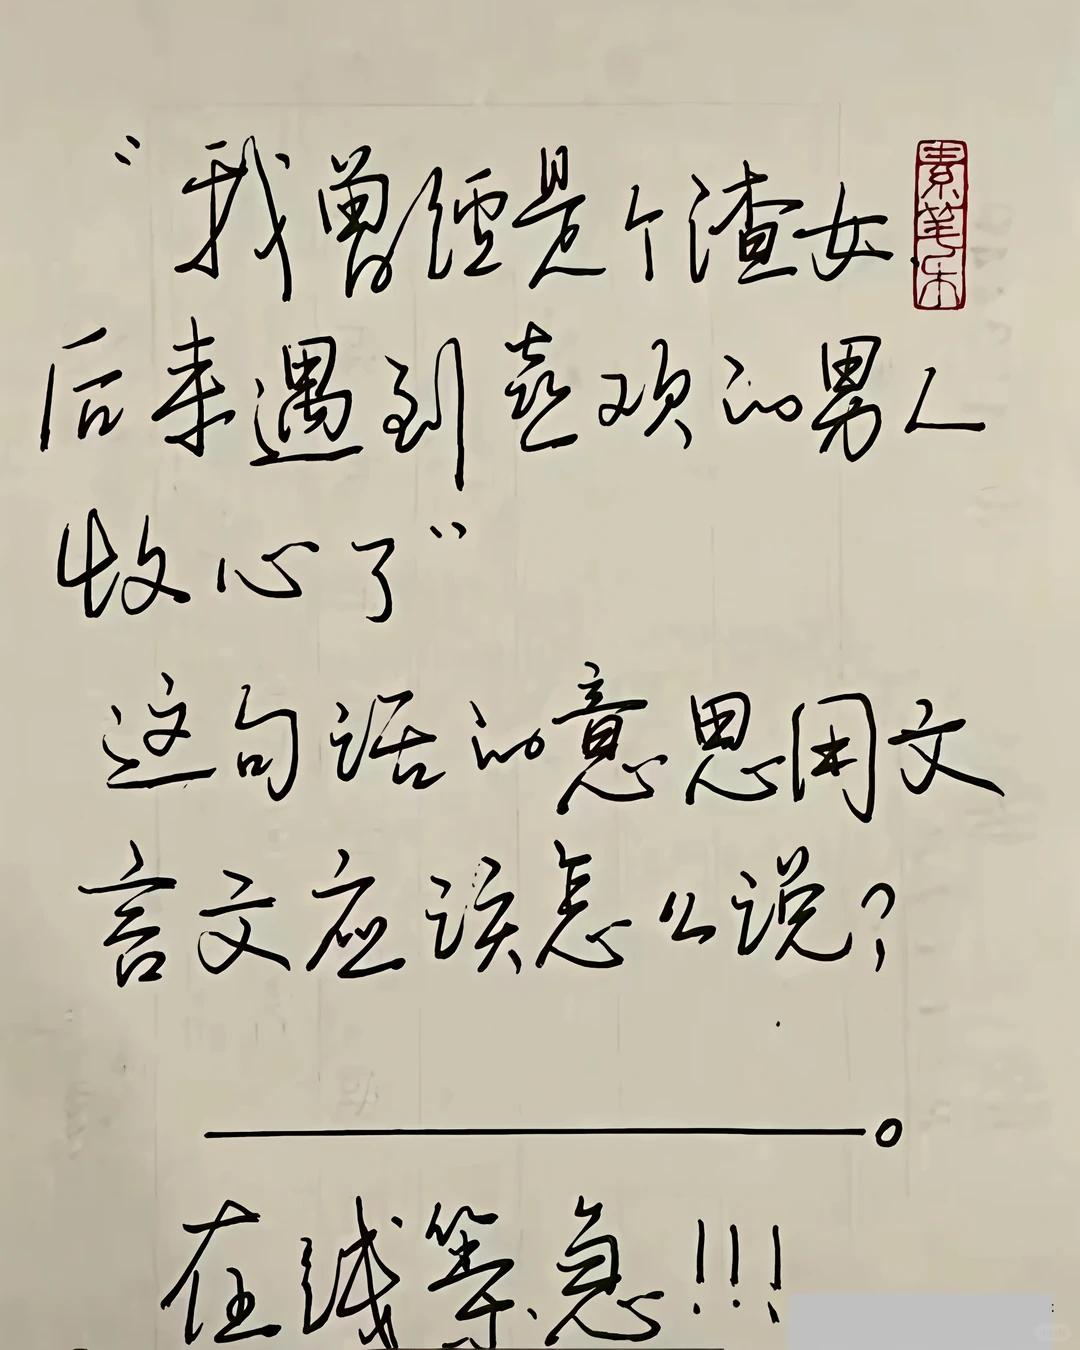 "我曾经是个渣女
素笔乐
后来遇到喜欢的男人
收心了"
这句话的意思用文
言文应该怎么说?
在线等.急!!!